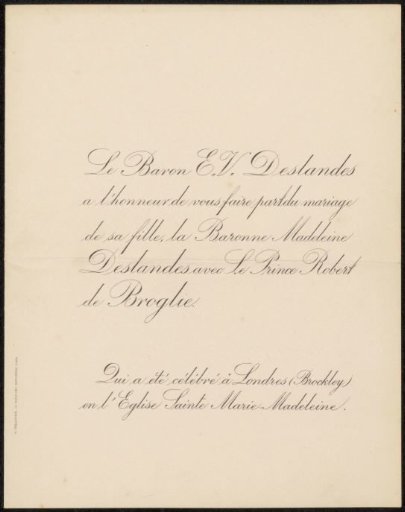 Le Baron E.V. Deslandes
a l'honneur de vous faire part du mariage
de sa fille, la Baronne Madeleine
Deslandes avec Le Prince Robert
de Broglie.
Qui a été célébré à Londres (Brockley)
en l'Eglise Sainte Marie Madeleine.